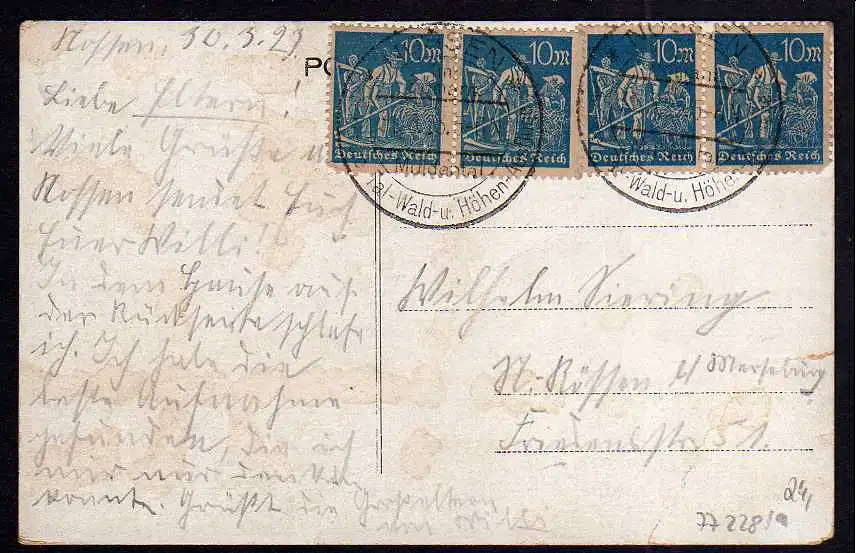 Nossen, 30.3.23
Liebe Eltern!
Viele Grüße
Nossen sendet Euch
Euer Willi!
In dem Hause auf
der Rückseite schlafe
ich. Ich habe die
beste Aufnahme
gefunden, die ich
mir nur denken
konnte. Grüßt die Großeltern
Willi
PO
10m 10m 10m 10m
Deutsches Reich Deutsches Reich Deutsches Reich Deutsches Reich
NOSSEN
Muldental
Tal-Wald-u. Höhen-
NOSSEN
-Wald-u. Höhen-
Wilhelm Siering
N.-Rössen b/ Merseburg
Friedensstr. 51.
24,